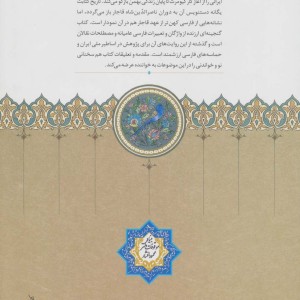 ایرانی را از آغاز کار کیومرث تا پایان زندگی بهمن بازگو می‌کند. تاریخ کتابت
یگانه دستنویس آن به دوران ناصرالدّین‌شاه قاجار باز می‌گردد، اما
نشانه‌هایی از فارسی کهن‌تر از عهد قاجار هم در آن نمودار است. کتاب
گنجینه‌ای ارزنده از واژگان و تعبیرات فارسی عامیانه و مصطلحات نقالان
است و گذشته از این روایت‌های آن برای پژوهش در اساطیر ملی ایران و
حماسه‌های فارسی ارزشمند است. مقدمه و تعلیقات کتاب هم سخنانی
نو و خواندنی را در این موضوعات به خواننده عرضه می‌کند.